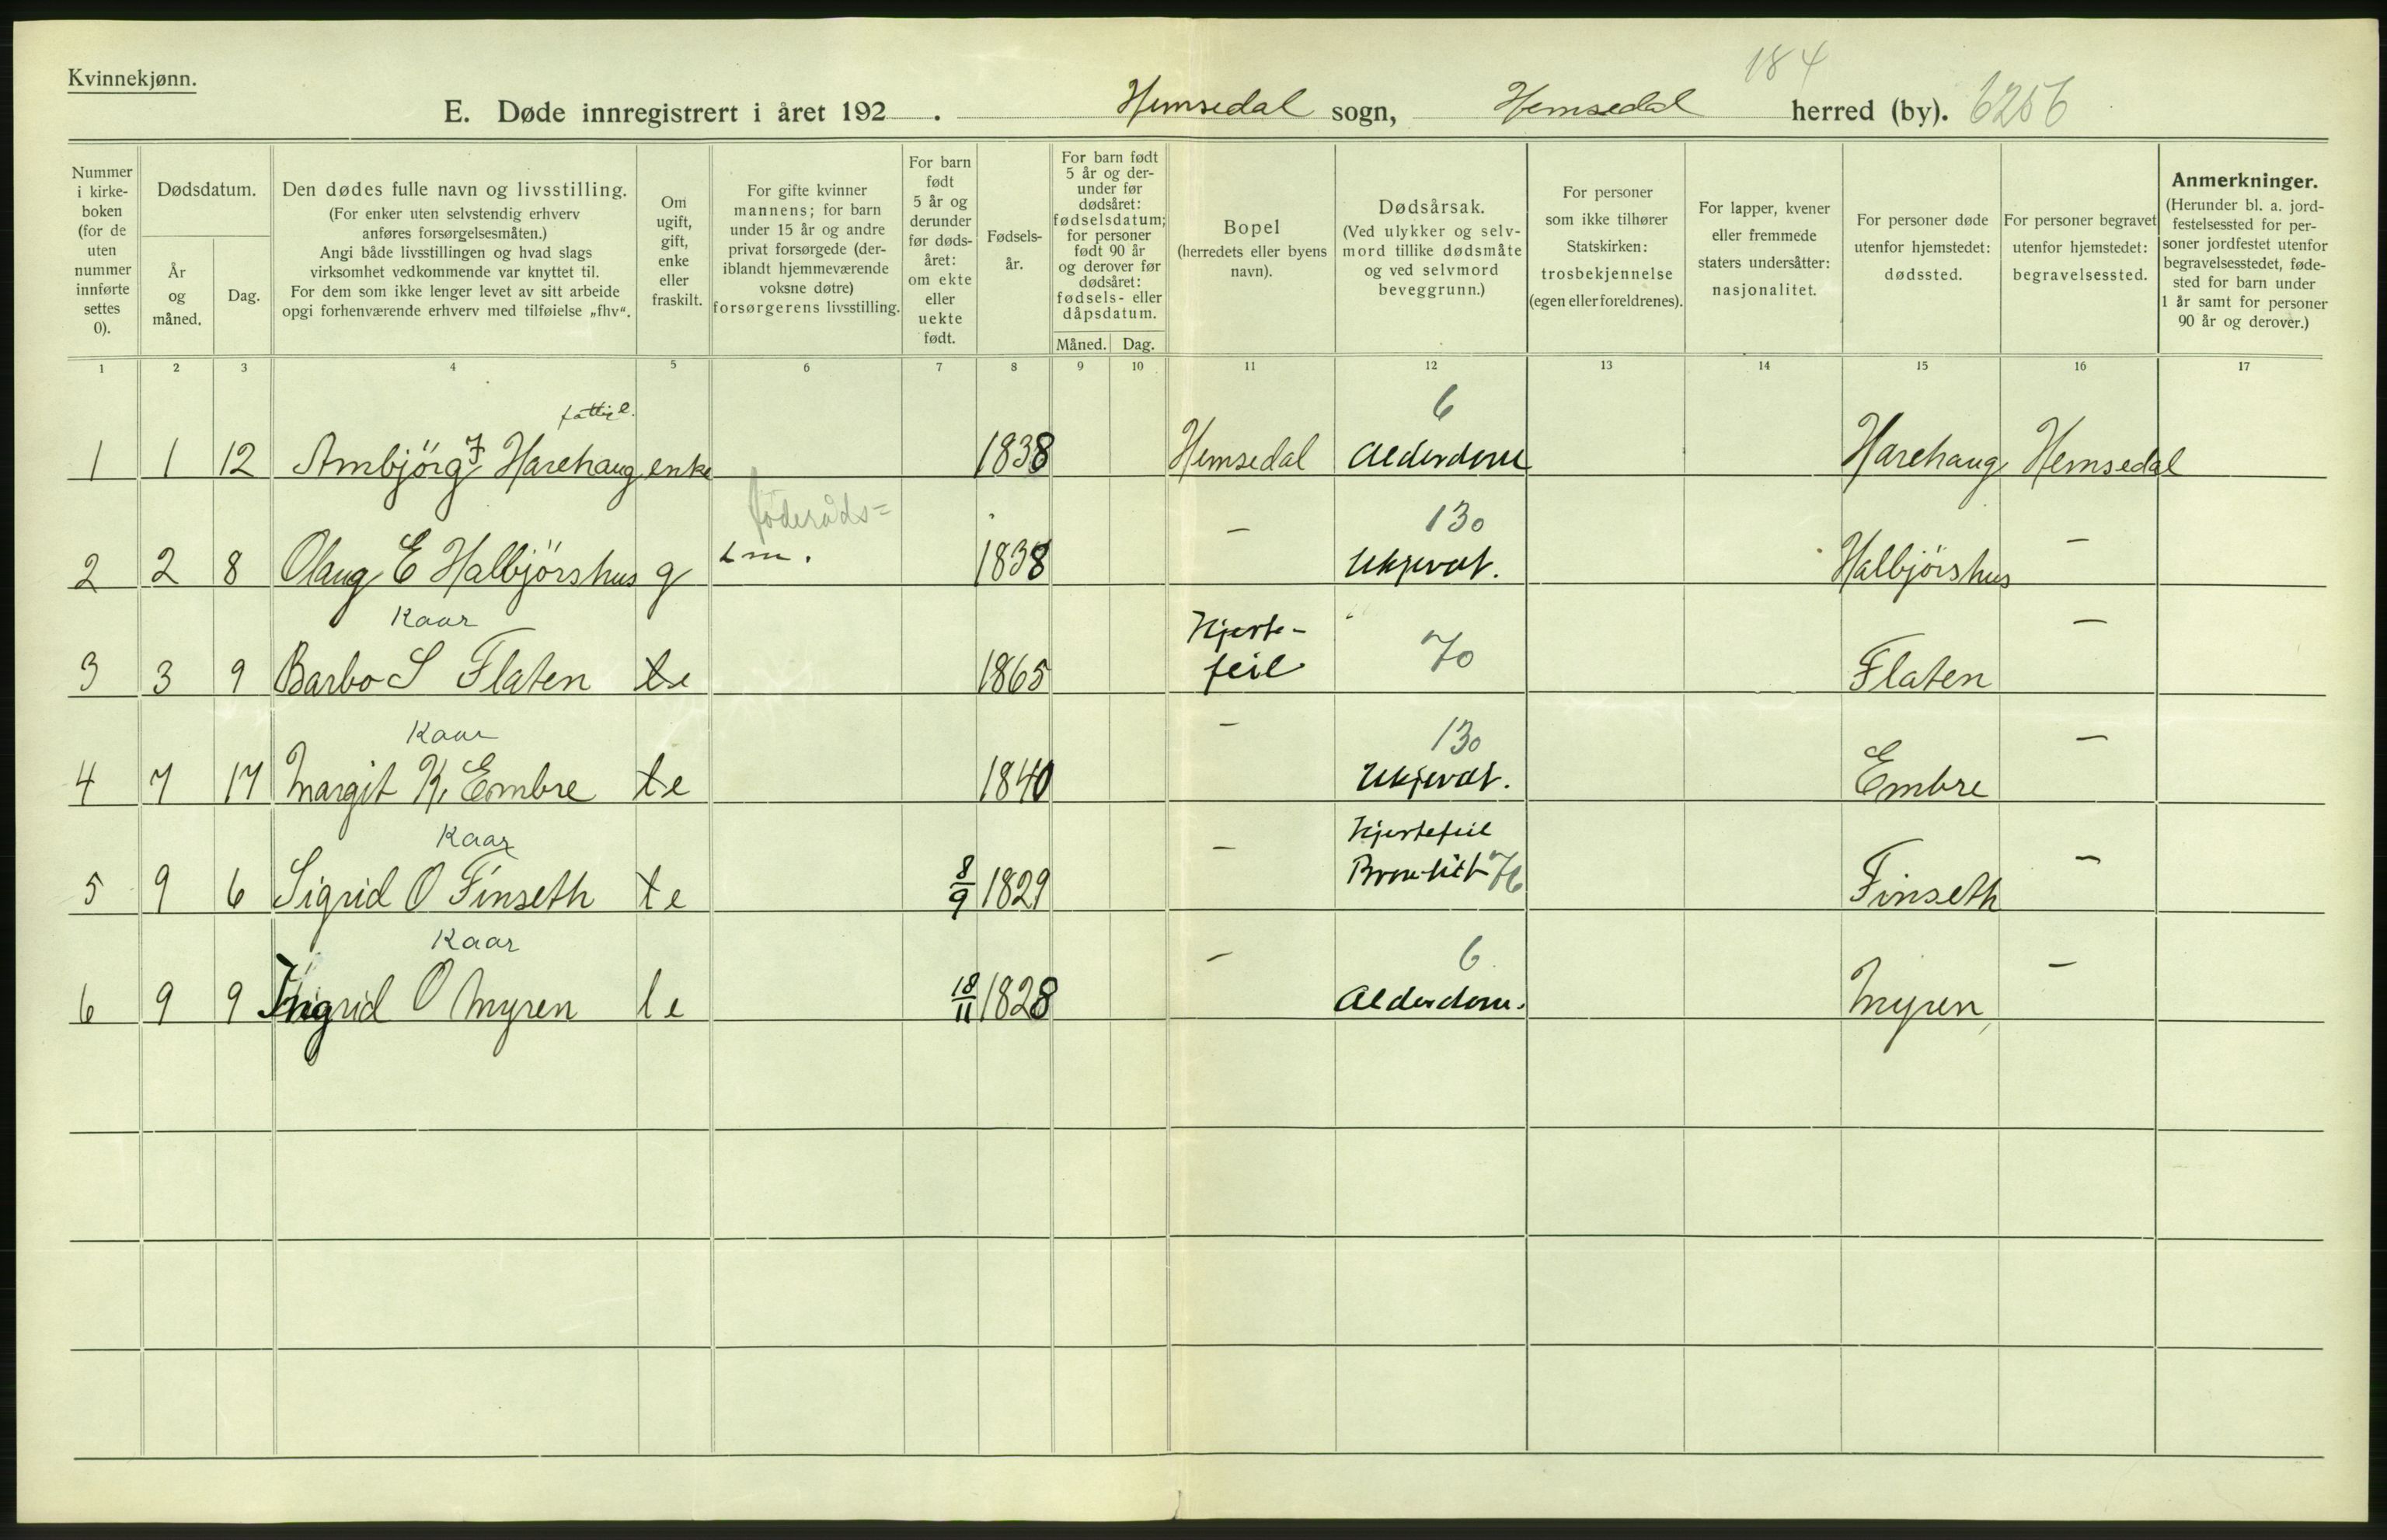 Kvinnekjønn.
184
E. Døde innregistrert i året 192 . Hemsedal sogn, Hemsedal herred (by). 6256
Nummer
i kirke-
boken
(for de
uten
nummer
innførte
settes
0).
Dødsdatum.
År
og
måned.
Dag.
Den dødes fulle navn og livsstilling.
(For enker uten selvstendig erhverv
anføres forsørgelsesmåten.)
Angi både livsstillingen og hvad slags
virksomhet vedkommende var knyttet til.
For dem som ikke lenger levet av sitt arbeide
opgi forhenværende erhverv med tilføielse „fhv“.
Om
ugift,
gift,
enke
eller
fraskilt.
For gifte kvinner
mannens; for barn
under 15 år og andre
privat forsørgede (der-
iblandt hjemmeværende
voksne døtre)
forsørgerens livsstilling.
For barn
født
5 år og
derunder
før døds-
året:
om ekte
eller
uekte
født.
Fødsels-
år.
For barn født
5 år og der-
under før
dødsåret:
fødselsdatum;
for personer
født 90 år
og derover før
dødsåret:
fødsels- eller
dåpsdatum.
Måned. Dag.
Bopel
(herredets eller byens
navn).
Dødsårsak.
(Ved ulykker og selv-
mord tillike dødsmåte
og ved selvmord
beveggrunn.)
For personer
som ikke tilhører
Statskirken:
trosbekjennelse
(egen eller foreldrenes).
For lapper, kvener
eller fremmede
staters undersåtter:
nasjonalitet.
For personer døde
utenfor hjemstedet:
dødssted.
For personer begravet
utenfor hjemstedet:
begravelsessted.
Anmerkninger.
(Herunder bl. a. jord-
festelsessted for per-
soner jordfestet utenfor
begravelsesstedet, føde-
sted for barn under
1 år samt for personer
90 år og derover.)
1 2 3 4 5 6 7 8 9 10 11 12 13 14 15 16 17
6
1 1 12 Ambjörg Harehaug enke 1838 Hemsedal Alderdom Harehaug Hemsedal
føderåds=
130
2 2 8 Olaug E Halbjörshus g 1838 – Ukjendt. Halbjörshus –
Kaar
Hjerte-
3 3 9 Barbo S Flaten e 1865 feil 70 Flaten –
Kaar
130
4 7 17 Margit K. Embre e 1840 – Ukjendt. Embre –
Kaar
Hjertefeil
5 9 6 Sigrid O Finseth e 8/9 1829 – Bronkitt 76 Finseth –
Kaar
6
6 9 9 Ingrid O Myren e 18/11 1828 – Alderdom. Myren –